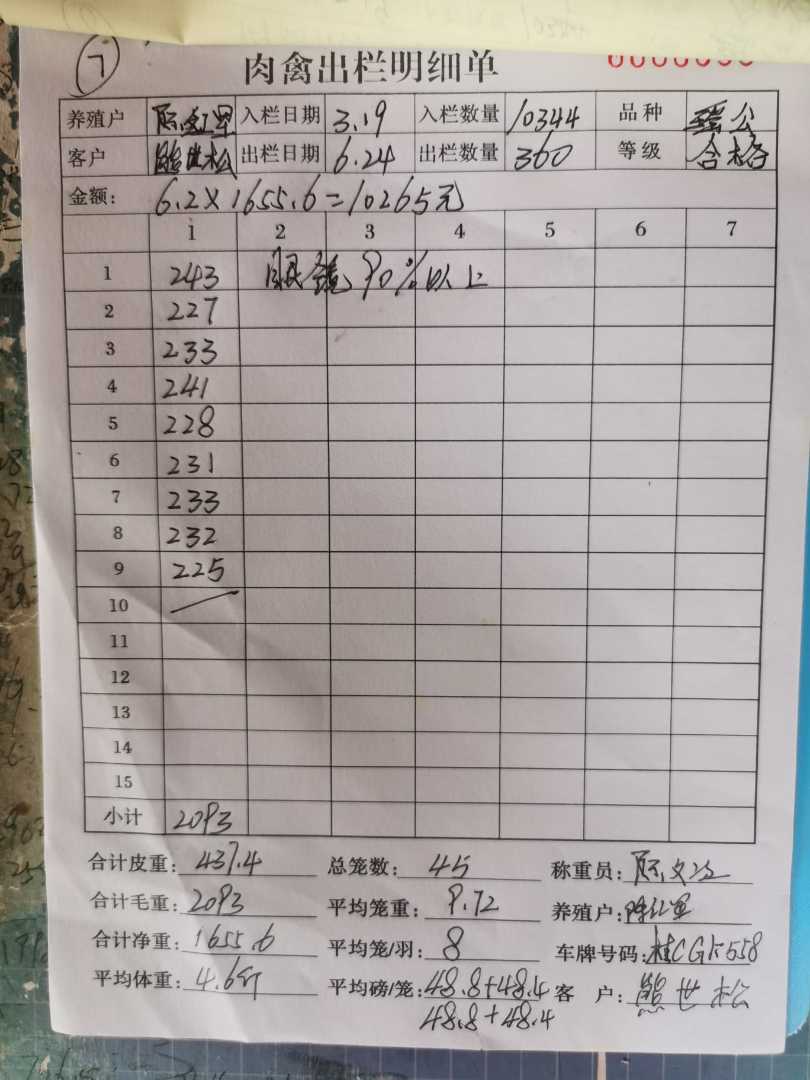 7
肉禽出栏明细单
养殖户 陈红军 入栏日期 3.19 入栏数量 10344 品种 瑶公
客户 熊世松 出栏日期 6.24 出栏数量 360 等级 合格
金额: 6.2×1655.6=10265元
1 2 3 4 5 6 7
1 243 眼镜90%以上
2 227
3 233
4 241
5 228
6 231
7 233
8 232
9 225
10
11
12
13
14
15
小计 2093
合计皮重: 437.4 总笼数: 45 称重员:
合计毛重: 2093 平均笼重: 9.72 养殖户: 陈红军
合计净重: 1655.6 平均笼/羽: 8 车牌号码: 桂CGK558
平均体重: 4.6斤 平均磅/笼: 48.8+48.4 客 户: 熊世松
48.8+48.4